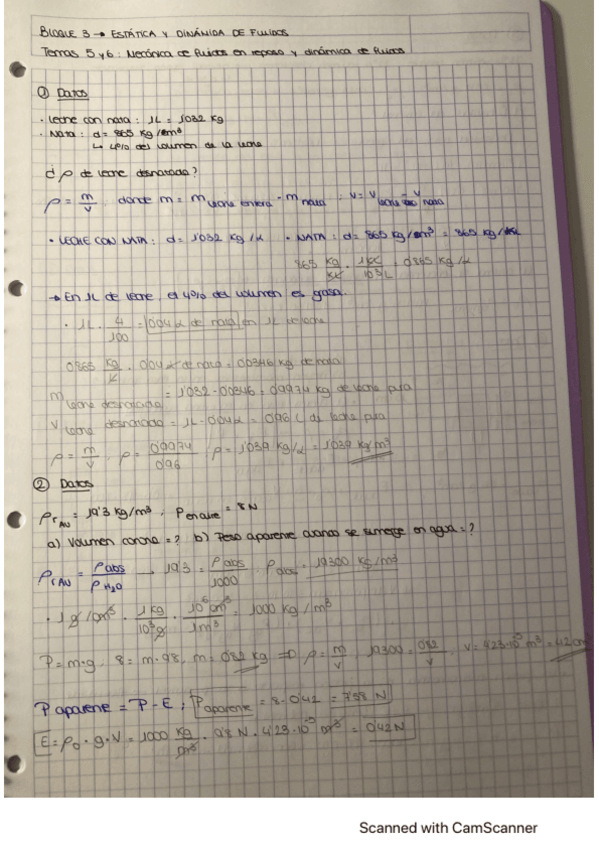 BLOQUE 3 → ESTÁTICA Y DINÁMIDA DE FLUIDOS
Temas 5 y 6: Mecánica de fluidos en reposo y dinámica de fluidos
① Datos
· Leche con nata: 1L = 1'032 kg
· Nata: d = 865 kg/m³
↳ 4% del volumen de la leche
d ρ de leche desnatada?
ρ = m/v ; donde m = m leche entera - m nata ; v = v leche - v nata
· LECHE CON NATA: d = 1'032 kg/L · NATA: d = 865 kg/m³ = 865 kg/kL
865 kg/kL · 1kL/10³L = 0'865 kg/L
→ En 1L de leche, el 4% del volumen es grasa.
· 1L · 4/100 = 0'04L de nata en 1L de leche
0'865 kg/L · 0'04L de nata = 0'0346 kg de nata
m leche desnatada = 1'032 - 0'0346 = 0'9974 kg de leche pura
v leche desnatada = 1L - 0'04L = 0'96 L de leche pura
ρ = m/v , ρ = 0'9974/0'96 , ρ = 1'039 kg/L = 1039 kg/m³
② Datos
ρrAu = 19'3 kg/m³ ; P en aire = 8N
a) Volumen corona = ? b) Peso aparente cuando se sumerge en agua = ?
ρrAu = ρabs/ρH2O → 19'3 = ρabs/1000 , ρabs = 19300 kg/m³
· 1g/cm³ · 1kg/10³g · 10⁶cm³/1m³ = 1000 kg/m³
P = m·g , 8 = m·9'8 , m = 0'82 kg ⇒ ρ = m/v , 19300 = 0'82/v , v = 4'23·10⁻⁵ m³ = 42 cm
P aparene = P - E ; P aparente = 8 - 0'42 = 7'58 N
E = ρ0 · g · V = 1000 kg/m³ · 9'8 N · 4'23·10⁻⁵ m³ = 0'42 N
Scanned with CamScanner